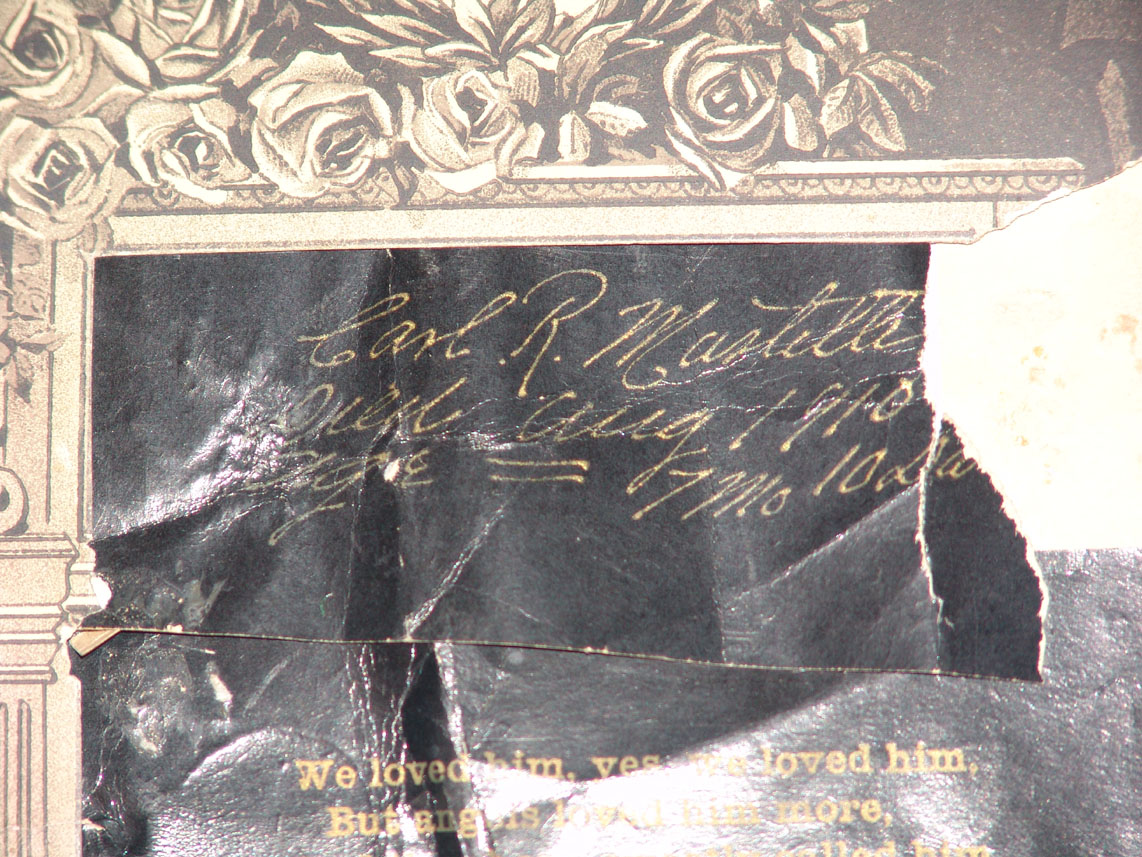 Carl R. Mastelle
Died Aug 1918
Age = 7 Mo 10 Da
We loved him, yes, we loved him,
But angels loved him more,
called him